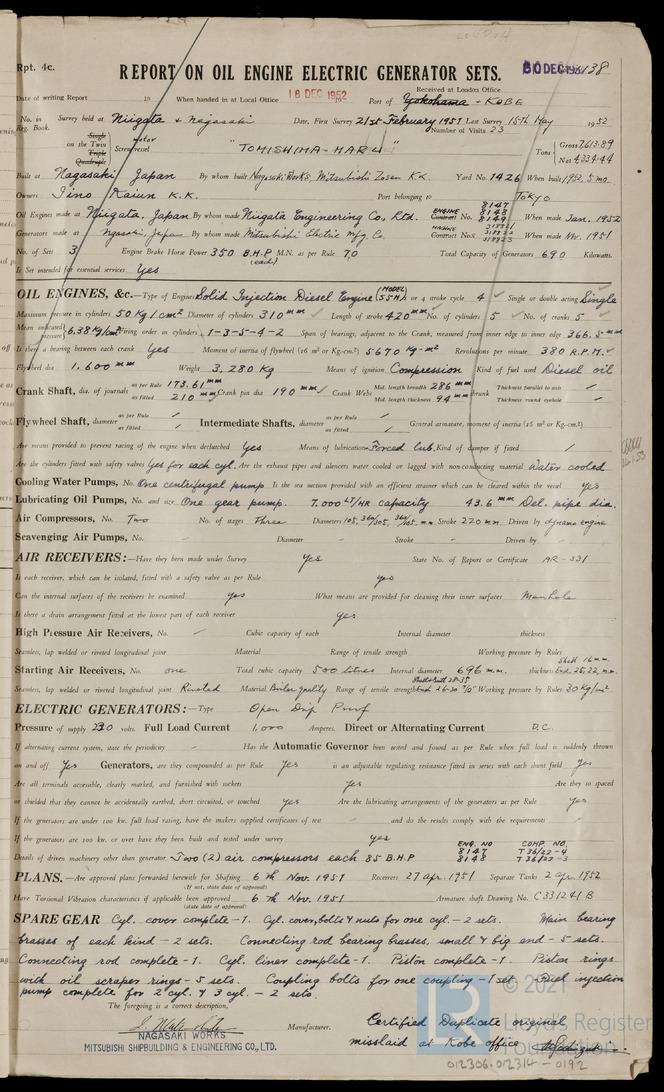 Rpt. 4c.
REPORT ON OIL ENGINE ELECTRIC GENERATOR SETS.
Received at London Office
Date of writing Report 19 When handed in at Local Office 18 DEC 1952 Port of Yokohama - KOBE
No. in Reg. Book. Survey held at Niigata & Nagasaki Date, First Survey 21st February 1951 Last Survey 15th May 1952
Number of Visits 23
Single on the Twin Triple Quadruple Screw vessel motor "TOMISHIMA-MARU" Tons Gross 7613.89 Net 4334.44
Built at Nagasaki, Japan By whom built Nagasaki Works, Mitsubishi Zosen K.K. Yard No. 1426 When built 1952, 5 mo
Owners Iino Kaiun K.K. Port belonging to Tokyo
Oil Engines made at Niigata, Japan By whom made Niigata Engineering Co, Ltd. ENGINE Contract No. 8147 8148 8149 When made Jan. 1952
Generators made at Nagasaki, Japan By whom made Mitsubishi Electric Mfg. Co. Contract No. When made Nov. 1951
No. of Sets 3 Engine Brake Horse Power 350 B.H.P (each) M.N. as per Rule 70 Total Capacity of Generators 690 Kilowatts.
Is Set intended for essential services Yes
OIL ENGINES, &c.—Type of Engines Solid Injection Diesel Engine (MODEL) 2 or 4 stroke cycle 4 Single or double acting Single
Maximum pressure in cylinders 50 Kg/cm² Diameter of cylinders 310 mm Length of stroke 420 mm No. of cylinders 5 No. of cranks 5
Mean indicated pressure 6.38 Kg/cm² Firing order in cylinders 1-3-5-4-2 Span of bearings, adjacent to the Crank, measured from inner edge to inner edge 366.5 mm
Is there a bearing between each crank Yes Moment of inertia of flywheel (16 m² or Kg.-cm²) 5670 Kg-m² Revolutions per minute 380 R.P.M.
Flywheel dia. 1,600 mm Weight 3,280 Kg Means of ignition Compression Kind of fuel used Diesel oil
Crank Shaft, dia. of journals as per Rule 173.61 mm as fitted 210 mm Crank pin dia 190 mm Crank Webs Mid. length breadth 286 mm Mid. length thickness 94 mm shrunk Thickness parallel to axis Thickness round eyehole
Flywheel Shaft, diameter as per Rule as fitted Intermediate Shafts, diameter as per Rule as fitted General armature, moment of inertia (16 m² or Kg.-cm²)
Are means provided to prevent racing of the engine when declutched Yes Means of lubrication Forced lub. Kind of damper if fitted
Are the cylinders fitted with safety valves Yes for each cyl. Are the exhaust pipes and silencers water cooled or lagged with non-conducting material Water cooled
Cooling Water Pumps, No. One centrifugal pump Is the sea suction provided with an efficient strainer which can be cleared within the vessel Yes
Lubricating Oil Pumps, No. and size One gear pump. 7.000 LT/HR capacity 43.6 mm Del. pipe dia.
Air Compressors, No. Two No. of stages Three Diameters Stroke 220 mm. Driven by dynamo engine
Scavenging Air Pumps, No. - Diameter - Stroke - Driven by -
AIR RECEIVERS:—Have they been made under Survey Yes State No. of Report or Certificate AR-331
Is each receiver, which can be isolated, fitted with a safety valve as per Rule yes
Can the internal surfaces of the receivers be examined yes What means are provided for cleaning their inner surfaces Manhole
Is there a drain arrangement fitted at the lowest part of each receiver yes
High Pressure Air Receivers, No. Cubic capacity of each Internal diameter thickness
Seamless, lap welded or riveted longitudinal joint Material Range of tensile strength Working pressure by Rules
Starting Air Receivers, No. one Total cubic capacity 500 litres Internal diameter 696 mm. thickness Shell 16 mm. End 25, 22, mm.
Seamless, lap welded or riveted longitudinal joint Riveted Material Boiler quality Range of tensile strength End 26-30 T/□" Working pressure by Rules 30 Kg/cm²
ELECTRIC GENERATORS:—Type Open Drip Proof
Pressure of supply 230 volts. Full Load Current 1,000 Amperes. Direct or Alternating Current D.C.
If alternating current system, state the periodicity - Has the Automatic Governor been tested and found as per Rule when full load is suddenly thrown
on and off Yes Generators, are they compounded as per Rule Yes is an adjustable regulating resistance fitted in series with each shunt field Yes
Are all terminals accessible, clearly marked, and furnished with sockets Yes Are they so spaced
or shielded that they cannot be accidentally earthed, short circuited, or touched Yes Are the lubricating arrangements of the generators as per Rule Yes
If the generators are under 100 kw. full load rating, have the makers supplied certificates of test - and do the results comply with the requirements
If the generators are 100 kw. or over have they been built and tested under survey Yes
ENG. NO COMP. NO.
Details of driven machinery other than generator Two (2) air compressors each 85 B.H.P 8147 T36/22-4
8148 T36/22-3
PLANS.—Are approved plans forwarded herewith for Shafting 6th Nov. 1951 Receivers 27 apr. 1951 Separate Tanks 2 apr. 1952
(If not, state date of approval)
Have Torsional Vibration characteristics if applicable been approved 6th Nov. 1951 Armature shaft Drawing No. C331241B
(state date of approval)
SPARE GEAR Cyl. cover complete-1. Cyl. cover, bolts & nuts for one cyl.-2 sets. Main bearing
brasses of each kind - 2 sets. Connecting rod bearing brasses, small & big end - 5 sets.
Connecting rod complete-1. Cyl. liner complete-1. Piston complete-1. Piston rings
with oil scraper rings-5 sets. Coupling bolts for one coupling-1 set Fuel injection
pump complete for 2 cyl. & 3 cyl. - 2 sets.
The foregoing is a correct description,
NAGASAKI WORKS
MITSUBISHI SHIPBUILDING & ENGINEERING CO., LTD.
Manufacturer.
Certified Duplicate original
misslaid at Kobe office
© 2021
Lloyd's Register
Foundation
012306-012314-0192